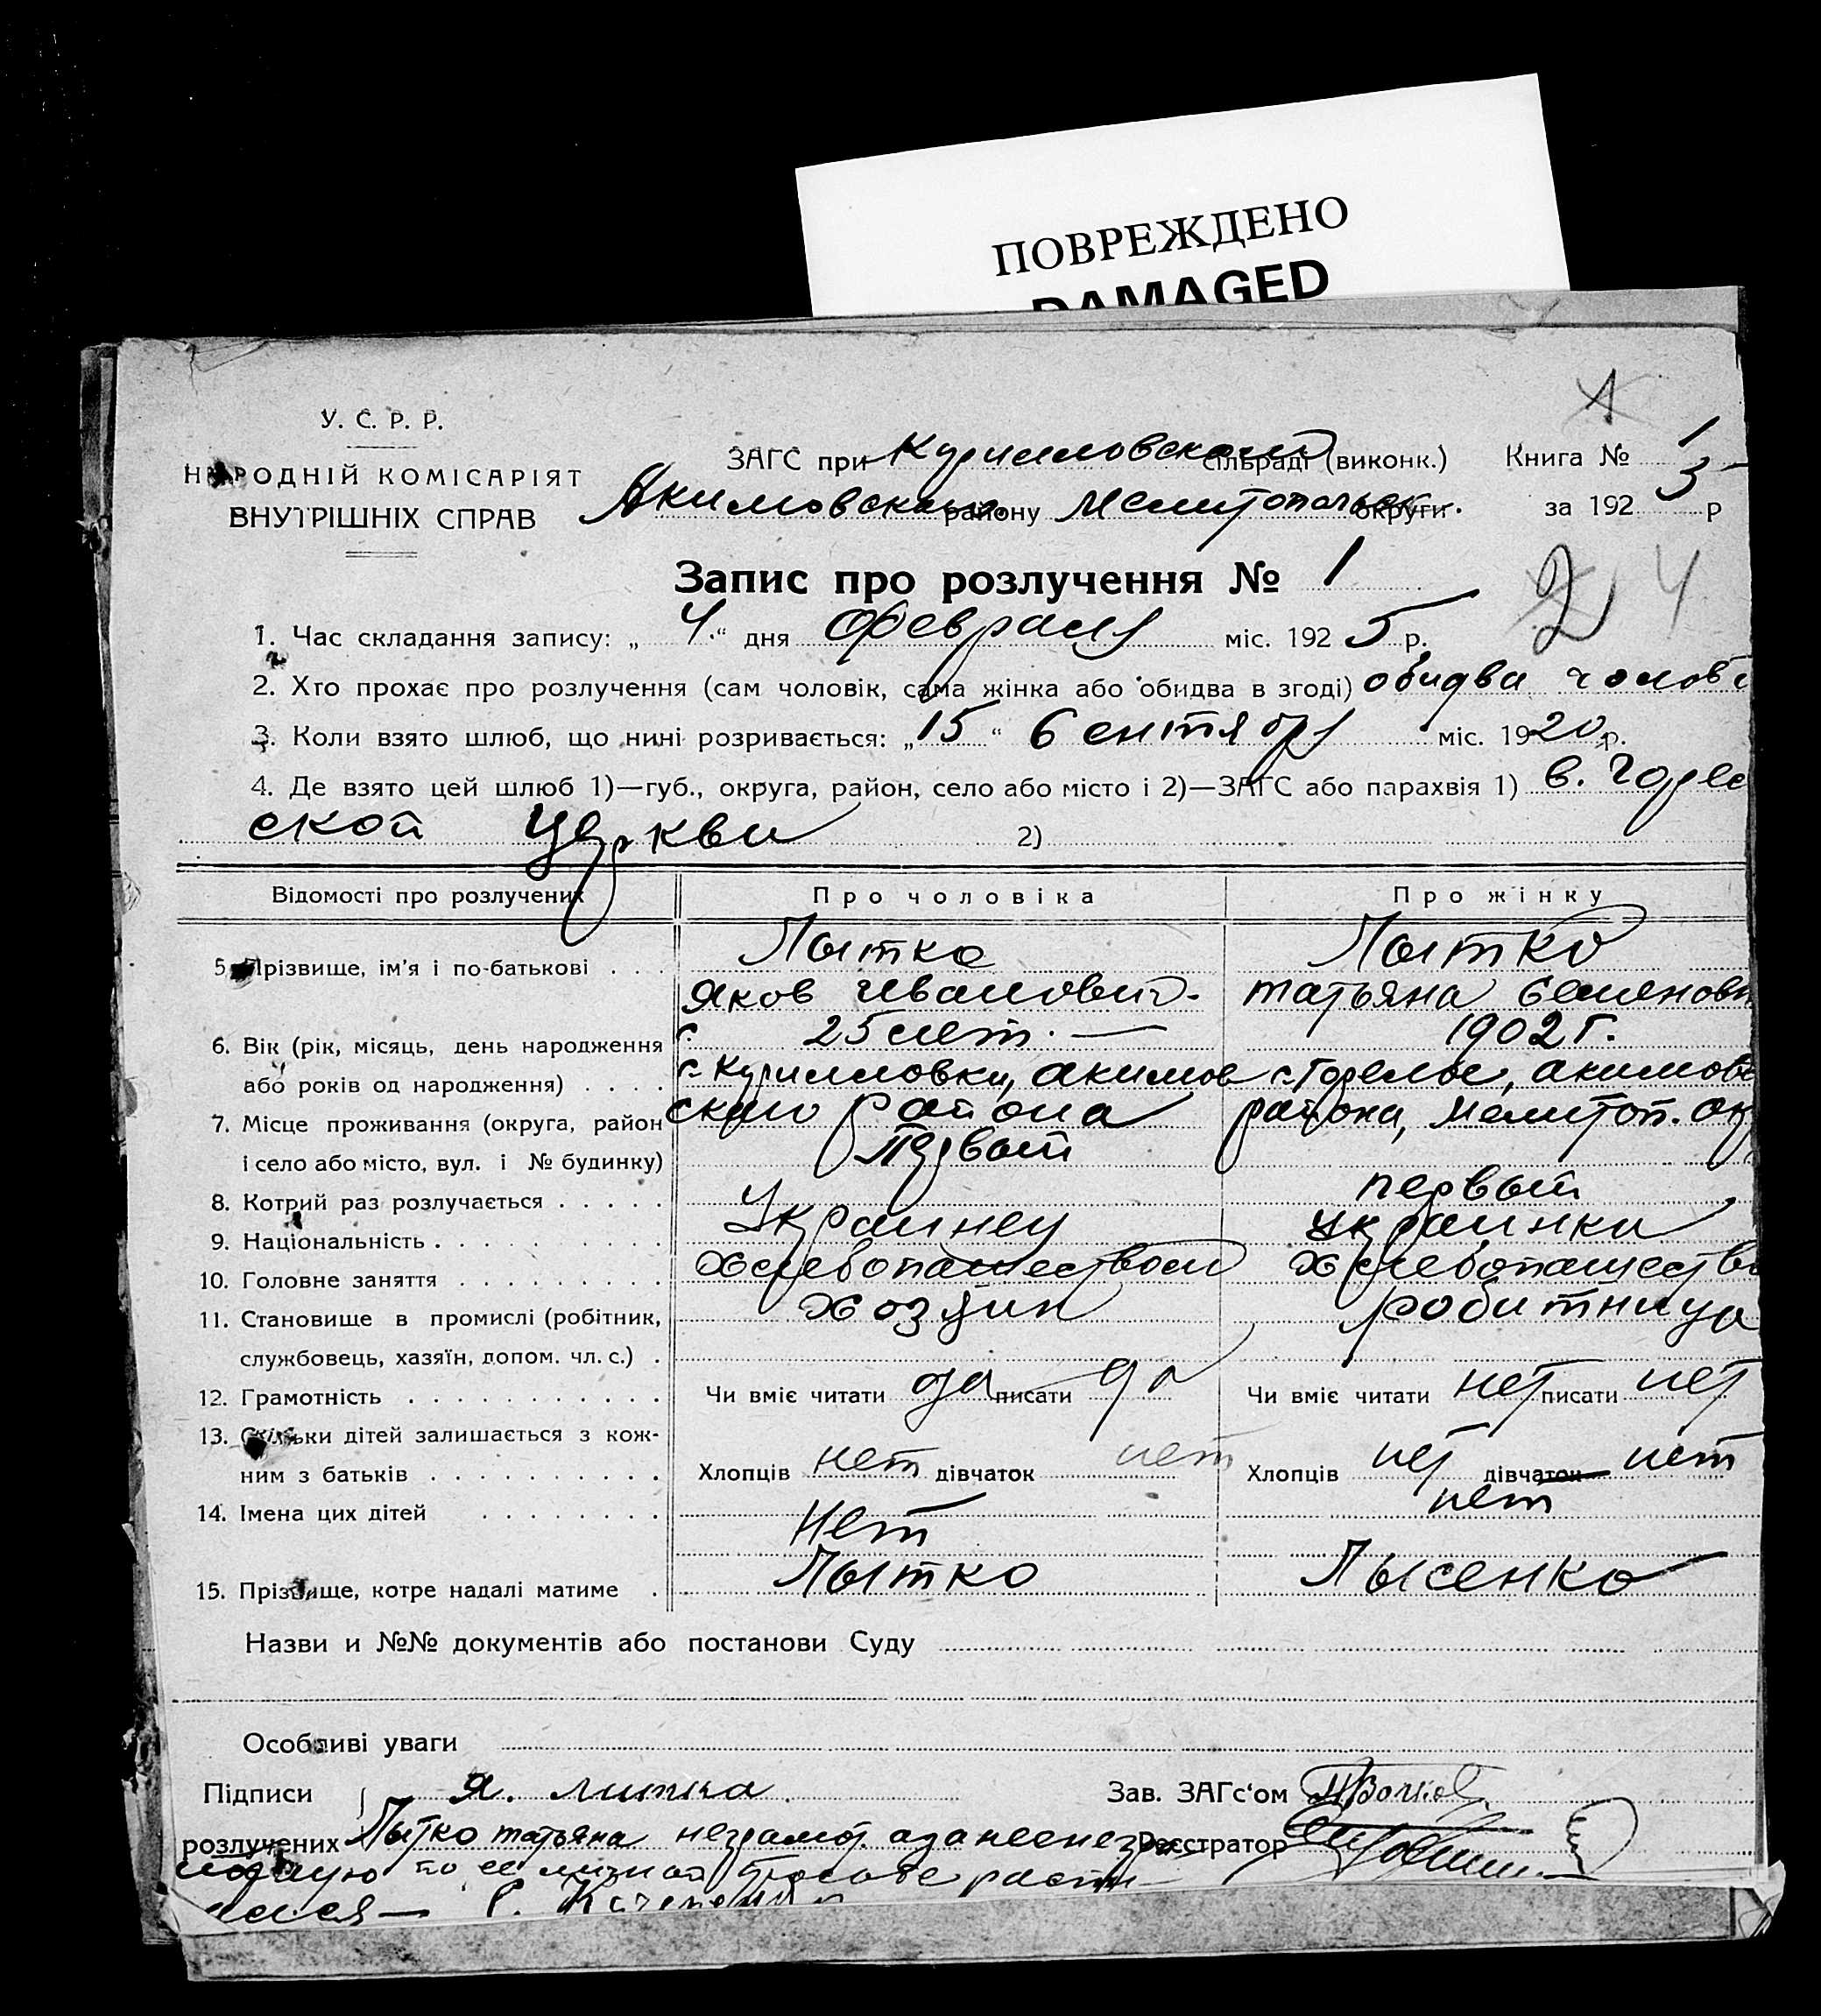 ПОВРЕЖДЕНО
DAMAGED
У. С. Р. Р.
НАРОДНІЙ КОМІСАРІЯТ
ВНУТРІШНІХ СПРАВ
ЗАГС при Кирилловской сільраді (виконк.) Книга № 1
Акимовского району Мелитопольск округи. за 192 5 р
Запис про розлучення № 1
2 4
1. Час складання запису: „ 4. “ дня Февраля міс. 192 5 р.
2. Хто прохає про розлучення (сам чоловік, сама жінка або обидва в згоді) обидва
3. Коли взято шлюб, що нині розривається: „ 15 “ Сентября міс. 1920 р.
4. Де взято цей шлюб 1)—губ., округа, район, село або місто і 2)—ЗАГС або парахвія 1) в. Горел
ской церкви 2)
Відомості про розлучених Про чоловіка Про жінку
5. Прізвище, ім'я і по-батькові . . Лытко Лытко
Яков Иванович Татьяна Семеновн
6. Вік (рік, місяць, день народження 25 лет. — 1902 г.
або років од народження) . . . . с. Кирилловки, Акимов с. Горелое, Акимовс
7. Місце проживання (округа, район ского района района, Мелитоп. ок
і село або місто, вул. і № будинку) Первый
8. Котрий раз розлучається . . . . . первый
9. Національність . . . . . . . . . Украинец украинка
10. Головне заняття . . . . . . . . . Хлебопашеством Хлебопашество
11. Становище в промислі (робітник, Хозяин работница
службовець, хазяїн, допом. чл. с.) .
12. Грамотність . . . . . . . . . . . Чи вміє читати да писати да Чи вміє читати нет писати нет
13. Скільки дітей залишається з кож-
ним з батьків . . . . . . . . . . Хлопців нет дівчаток нет Хлопців нет дівчаток нет
14. Імена цих дітей . . . . . . . . нет нет
15. Прізвище, котре надалі матиме . Лытко Лысенко
Назви и №№ документів або постанови Суду
Особливі уваги
Підписи Я. Литка Зав. ЗАГс'ом
розлучених Лытко Татьяна неграмот. а за нее Реєстратор
по ее личной просьбе расп